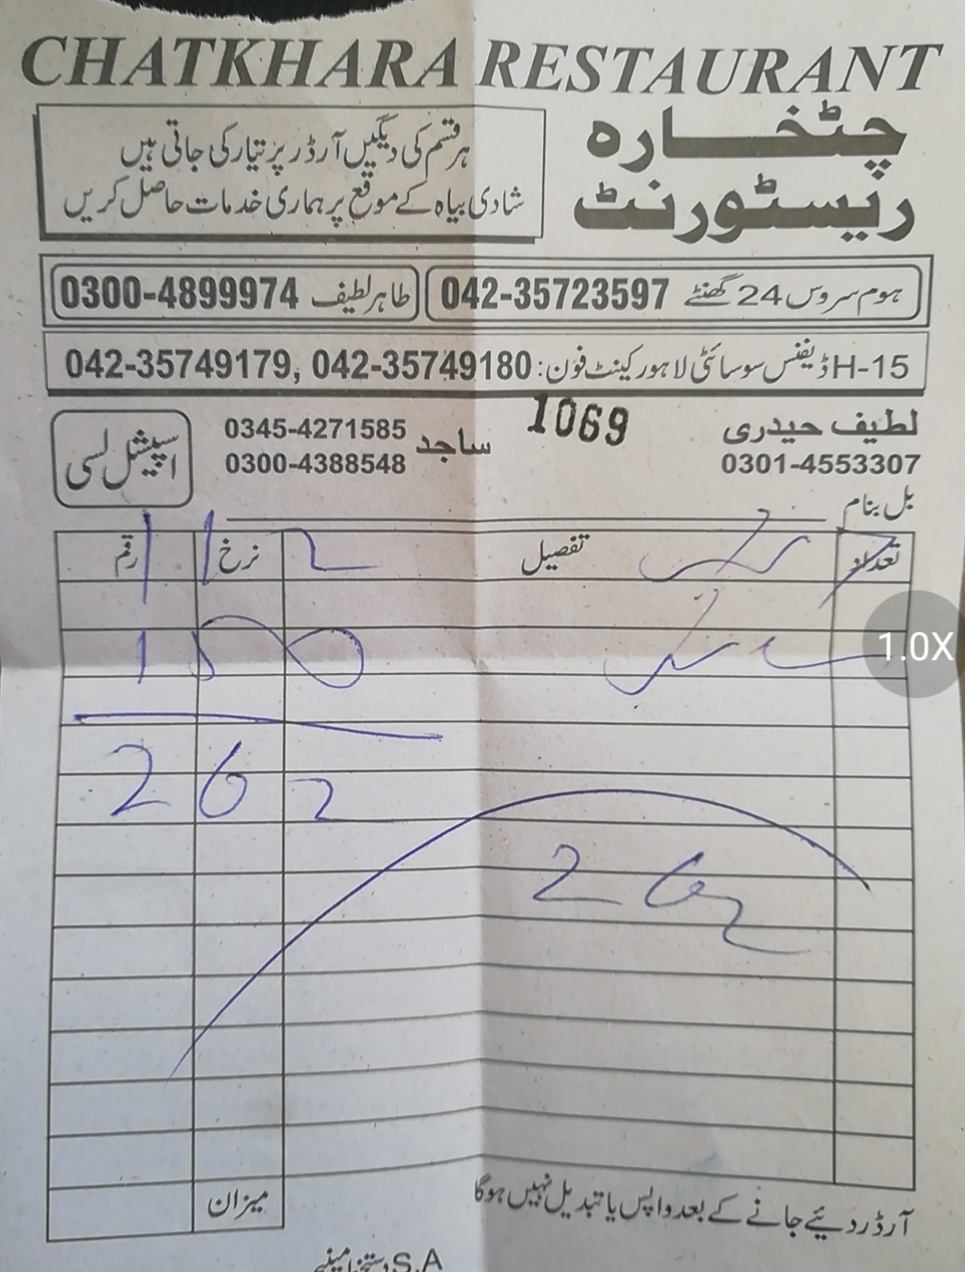 CHATKHARA RESTAURANT
چٹخارہ
ریسٹورنٹ
ہر قسم کی دیگیں آرڈر پر تیار کی جاتی ہیں
شادی بیاہ کے موقع پر ہماری خدمات حاصل کریں
ہوم سروس 24 گھنٹے 042-35723597
طاہر لطیف 0300-4899974
H-15 ڈیفنس سوسائٹی لاہور کینٹ فون: 042-35749180, 042-35749179
1069
لطیف حیدری
0301-4553307
ساجد 0345-4271585
0300-4388548
اسپیشل لسی
بل بنام
تعداد تفصیل نرخ رقم
112
150
262
262
میزان
آرڈر دیئے جانے کے بعد واپس یا تبدیل نہیں ہوگا
S.A
1.0X